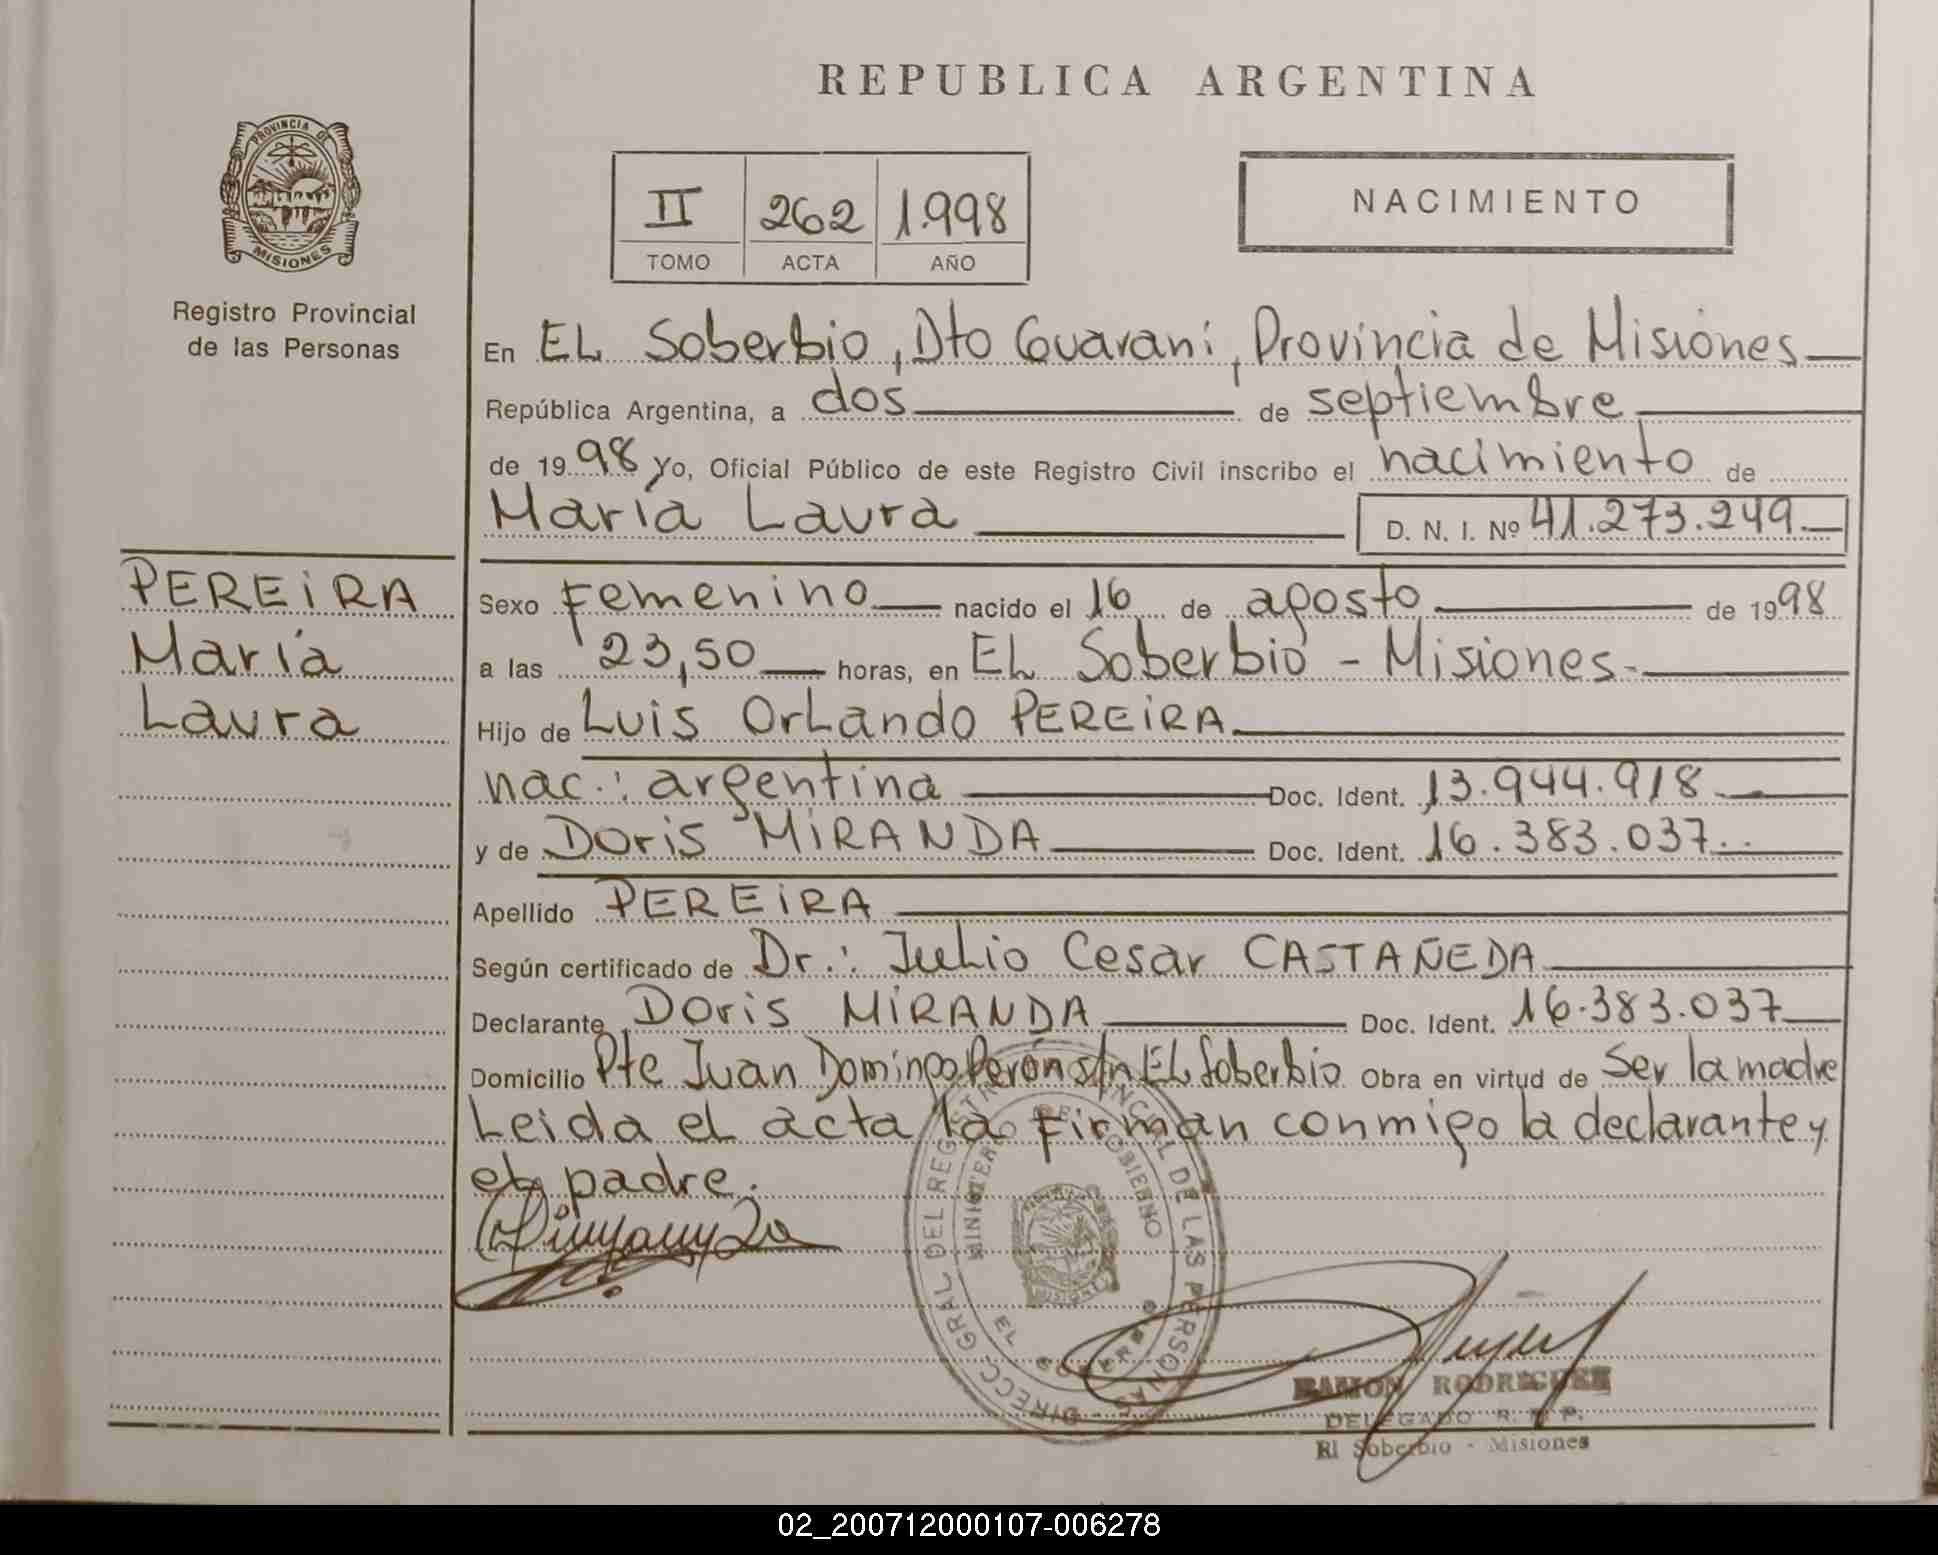 REPUBLICA ARGENTINA
PROVINCIA DE
MISIONES
Registro Provincial
de las Personas
II 262 1.998
TOMO ACTA AÑO
NACIMIENTO
En EL Soberbio, Dto Guaraní, Provincia de Misiones
República Argentina, a dos de septiembre
de 1998 Yo, Oficial Público de este Registro Civil inscribo el nacimiento de
María Laura D. N. I. Nº 41.273.249.
PEREIRA
María
Laura
Sexo Femenino nacido el 16 de agosto de 1998
a las 23,50 horas, en EL Soberbio - Misiones-
Hijo de Luis Orlando PEREIRA
nac.: argentina Doc. Ident. 13.944.918
y de Doris MIRANDA Doc. Ident. 16.383.037..
Apellido PEREIRA
Según certificado de Dr.: Julio Cesar CASTAÑEDA
Declarante Doris MIRANDA Doc. Ident. 16.383.037
Domicilio Pte Juan Domingo Perón s/n EL Soberbio Obra en virtud de Ser la madre
Leida el acta la firman conmigo la declarante y
el padre.
DIRECC. GRAL DEL REGISTRO PROVINCIAL DE LAS PERSONAS
MINISTERIO DE GOBIERNO
EL SOBERBIO
MISIONES
RAMON RODRIGUEZ
DELEGADO R. P. P.
El Soberbio - Misiones
02_200712000107-006278